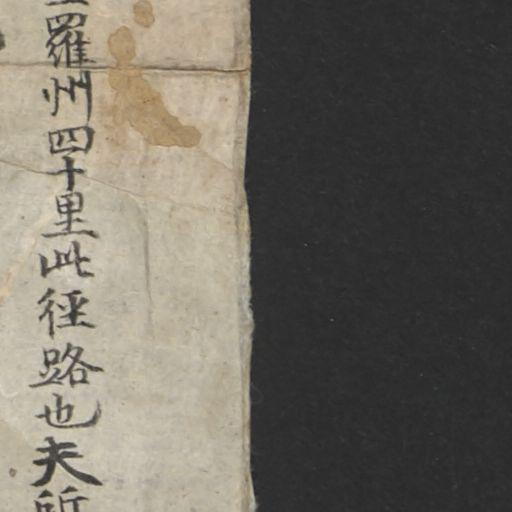 羅州四十里此徑路也夫所